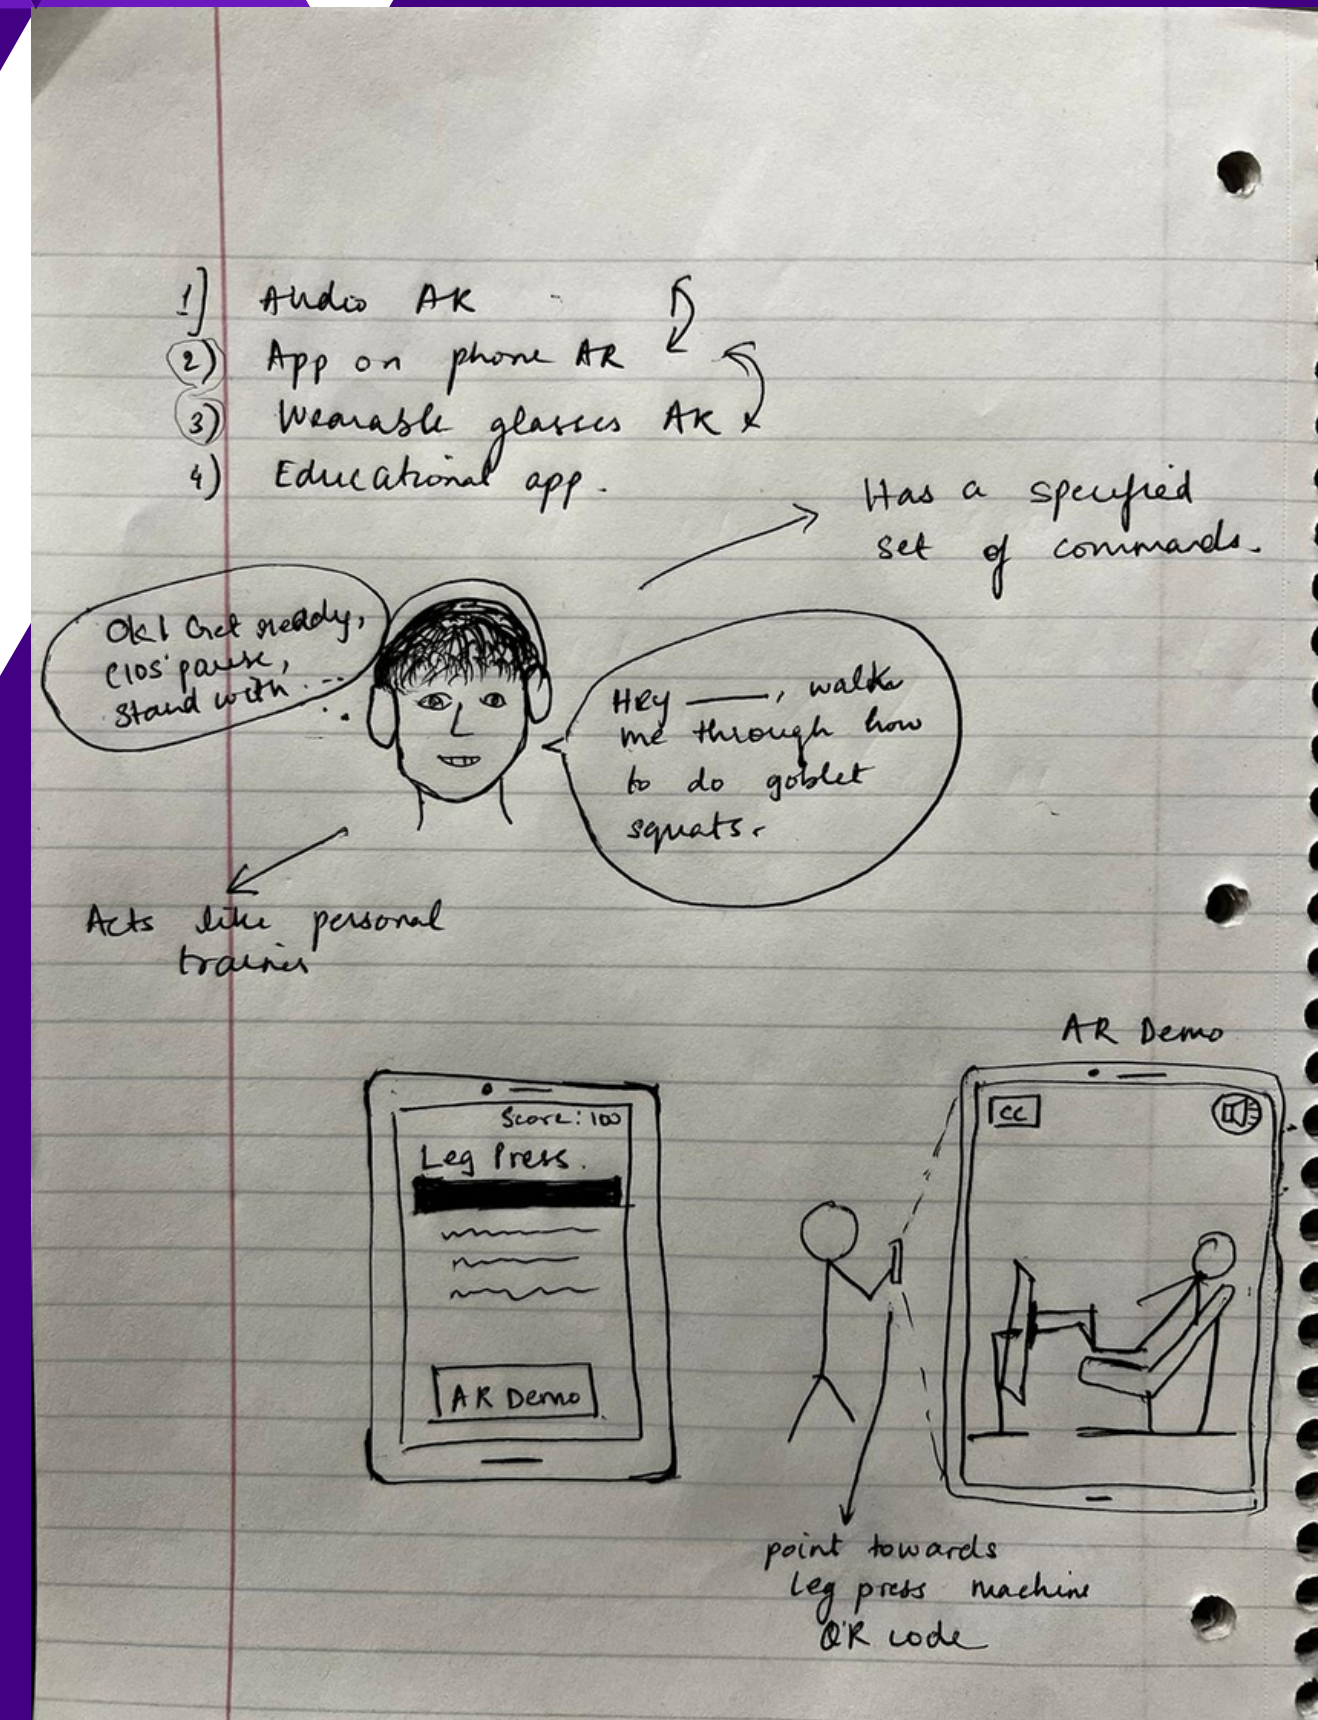 1] Audio AR
2) App on phone AR
3) Wearable glasses AR
4) Educational app.
Has a specified
set of commands.
Ok! Get ready,
pause,
Stand with ...
Hey ____, walk
me through how
to do goblet
squats.
Acts like personal
trainer
AR Demo
Score: 100
Leg Press.
AR Demo
CC
point towards
leg press machine
QR code